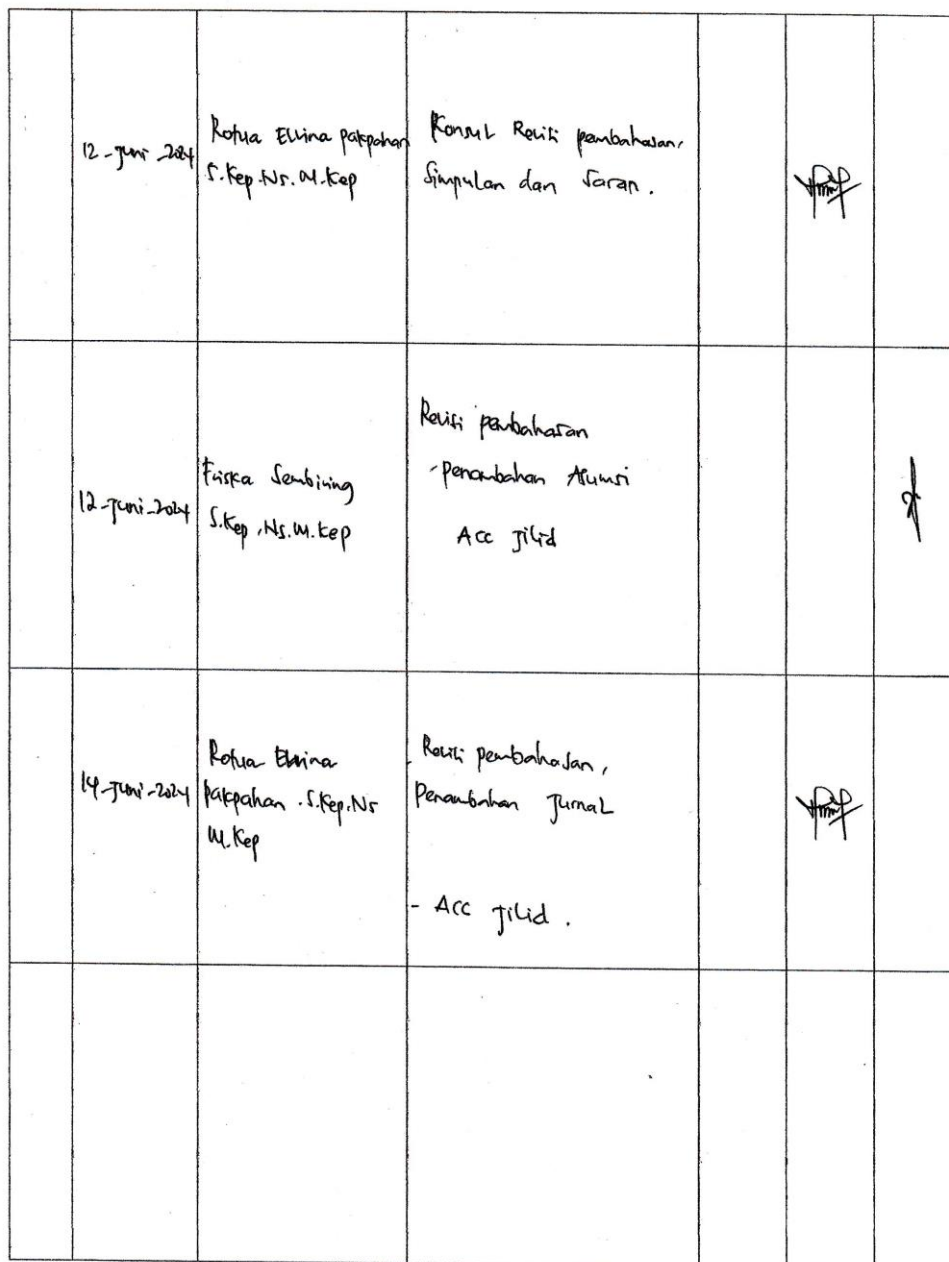 12-Juni-2024
Rotua Elvina pakpahan
S.Kep.Ns.M.Kep
Konsul Revisi pembahasan,
Simpulan dan Saran.
12-Juni-2024
Friska Sembiring
S.Kep,Ns.M.Kep
Revisi pembahasan
-penambahan Asumsi
Acc Jilid
14-Juni-2024
Rotua Elvina
pakpahan.S.Kep.Ns
M.Kep
Revisi pembahasan,
Penambahan Jurnal
- Acc Jilid.